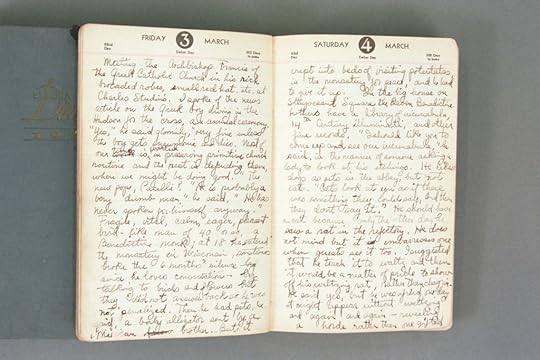 FRIDAY 3 MARCH
Meeting the Archbishop Francis of
the Greek Catholic Church in his rich
brocaded robes, small red hat, etc. at
Charles Studin's, I spoke of the news
article on the Greek boy diving in the
Hudson for the cross, an annual ceremony.
"Yes," he said gloomily, "very fine unless
the boy gets pneumonia and dies. Most of
our time is in preserving primitive church
routine and the rest is defending them,
when we might be doing good." The
new pope, Pacelli? "He is probably a
very dumb man," he said. "He has
never spoken for himself anyway."
Fragile, vital, calm, eager, peasant
bird-like man of 40 or so, a
Benedictine monk, at 18 he entered
the monastery in Wisconsin, sometimes
broke the 6 months' silence
since he loves conversation — by
talking to birds and flowers but
they did not answer back so he was
not penalized. Then he had pets, he
said, a baby alligator sent by a
brother. But it
SATURDAY 4 MARCH
crept into beds of visiting potentates
in the monastery for and he had
to give it up. In the big house on
Stuyvesant Square the eleven Benedictine
brothers have a library of incunabula,
"17th Century illuminati," and other
fine words. "I should like you to
come up and see our incunabula," he
said, in the manner of someone asking a
lady to look at his etchings. He likes
dogs as pets in the abbey, but not
cats. "Cats look at you as if there
was something they could say, and then
they don't say it." He should have
a cat because only the other day he
saw a rat in the refectory. He does
not mind but it is embarrassing
when guests see it too. I suggested
that he teach it to waltz and then
it would be a matter of pride to show
off his waltzing rat, rather than chagrin.
He said yes, but he was afraid
it might appear without waltzing
and again and again — revealing
a horde rather than one